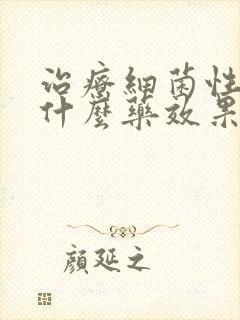 治療細菌性
什麼藥效果
顏延之